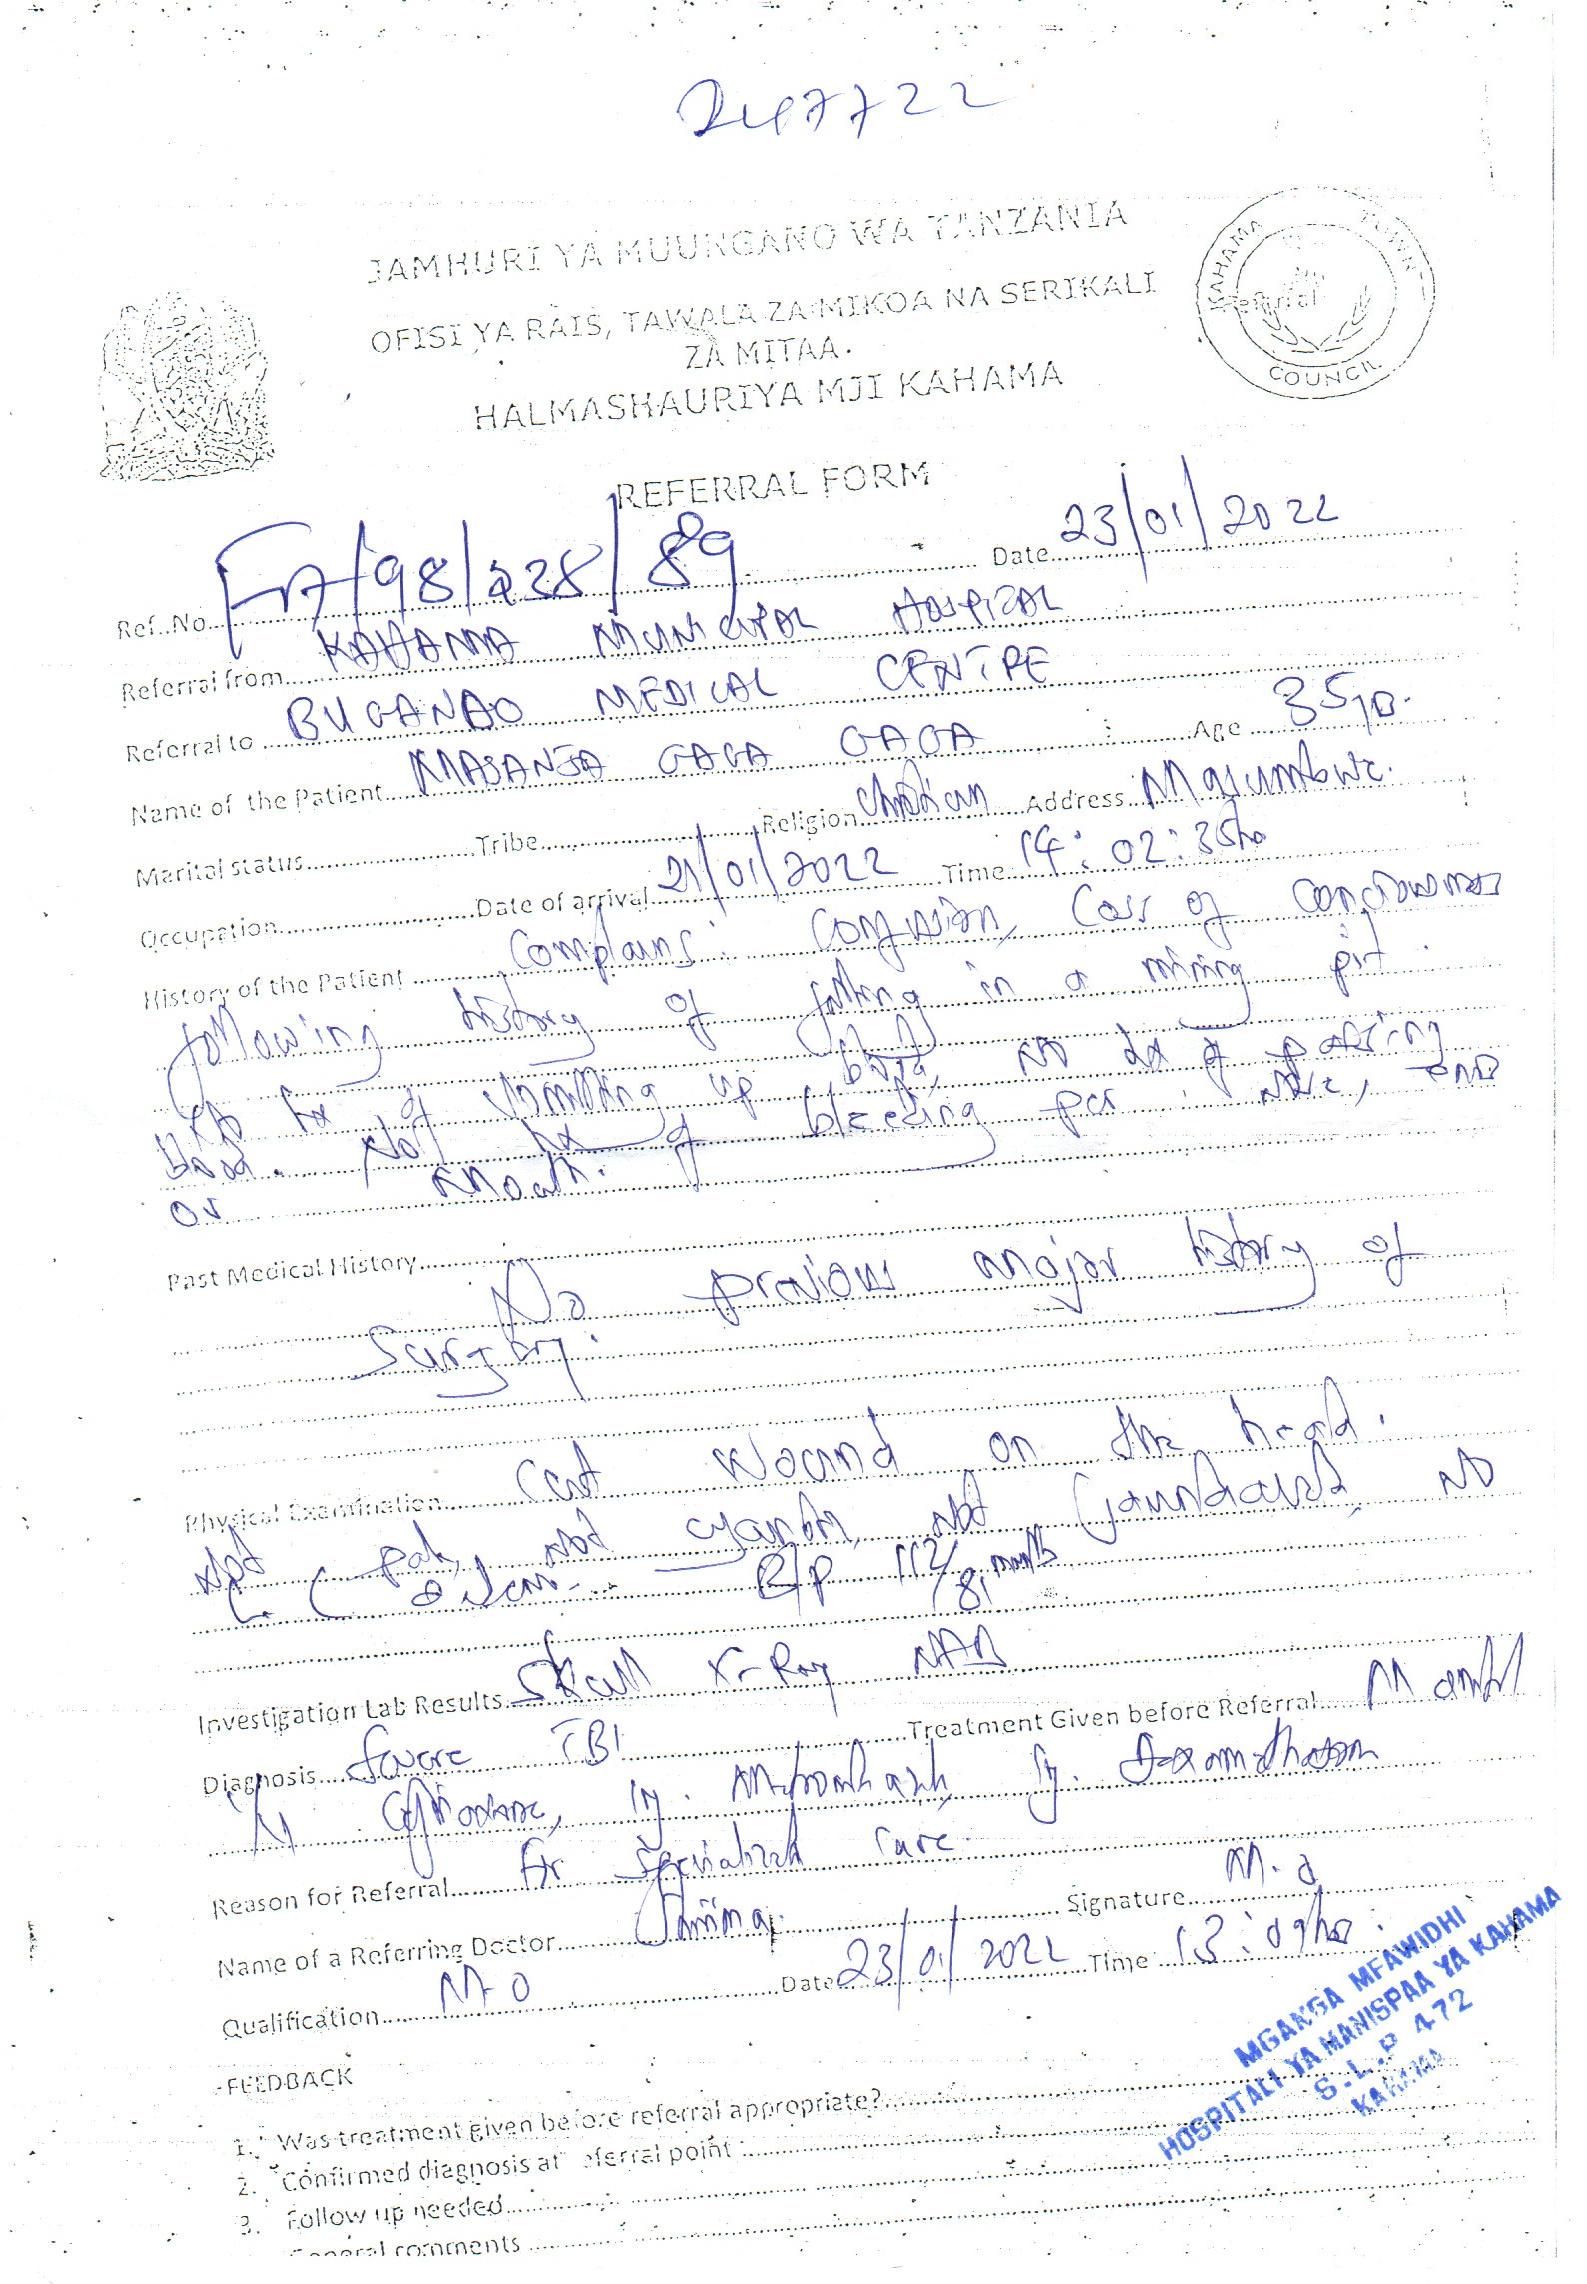 247722
JAMHURI YA MUUNGANO WA TANZANIA
OFISI YA RAIS, TAWALA ZA MIKOA NA SERIKALI
ZA MITAA.
HALMASHAURIYA MJI KAHAMA
KAHAMA TOWN
COUNCIL
REFERRAL FORM
Ref. No. /98/228/89 Date 23/01/2022
Referral from KAHAMA MUNICIPAL HOSPITAL
Referral to BUGANDO MEDICAL CENTRE
Name of the Patient MASANJA GAGA GAGA Age 35
Marital status Tribe Religion Christian Address Masumbwe.
Occupation Date of arrival 21/01/2022 Time 14:02:35hr
History of the Patient Complains: Confusion, Loss of consciousness
following history of falling in a mining pit.
No hx of vomiting up blood, no hx of passing
blood. No hx of bleeding per nose,
or mouth.
Past Medical History
No previous major history of
Surgery.
Physical Examination Cut wound on the head.
Not pale, not cyanotic, not jaundiced, no
L.L oedema B/P 112/81 mmHg
Investigation Lab Results Skull X-Ray NAD
Diagnosis Severe TBI Treatment Given before Referral
IV Ceftriaxone, Inj. Inj. Dexamethasone
Reason for Referral For Specialized care.
Name of a Referring Doctor Signature
Qualification M.O Date 23/01/2022 Time 13:09hrs.
MGANGA MFAWIDHI
HOSPITALI YA MANISPAA YA KAHAMA
S.L.P 472
KAHAMA
FEEDBACK
1. Was treatment given before referral appropriate?
2. Confirmed diagnosis at eferral point :
3. Follow up needed
General comments